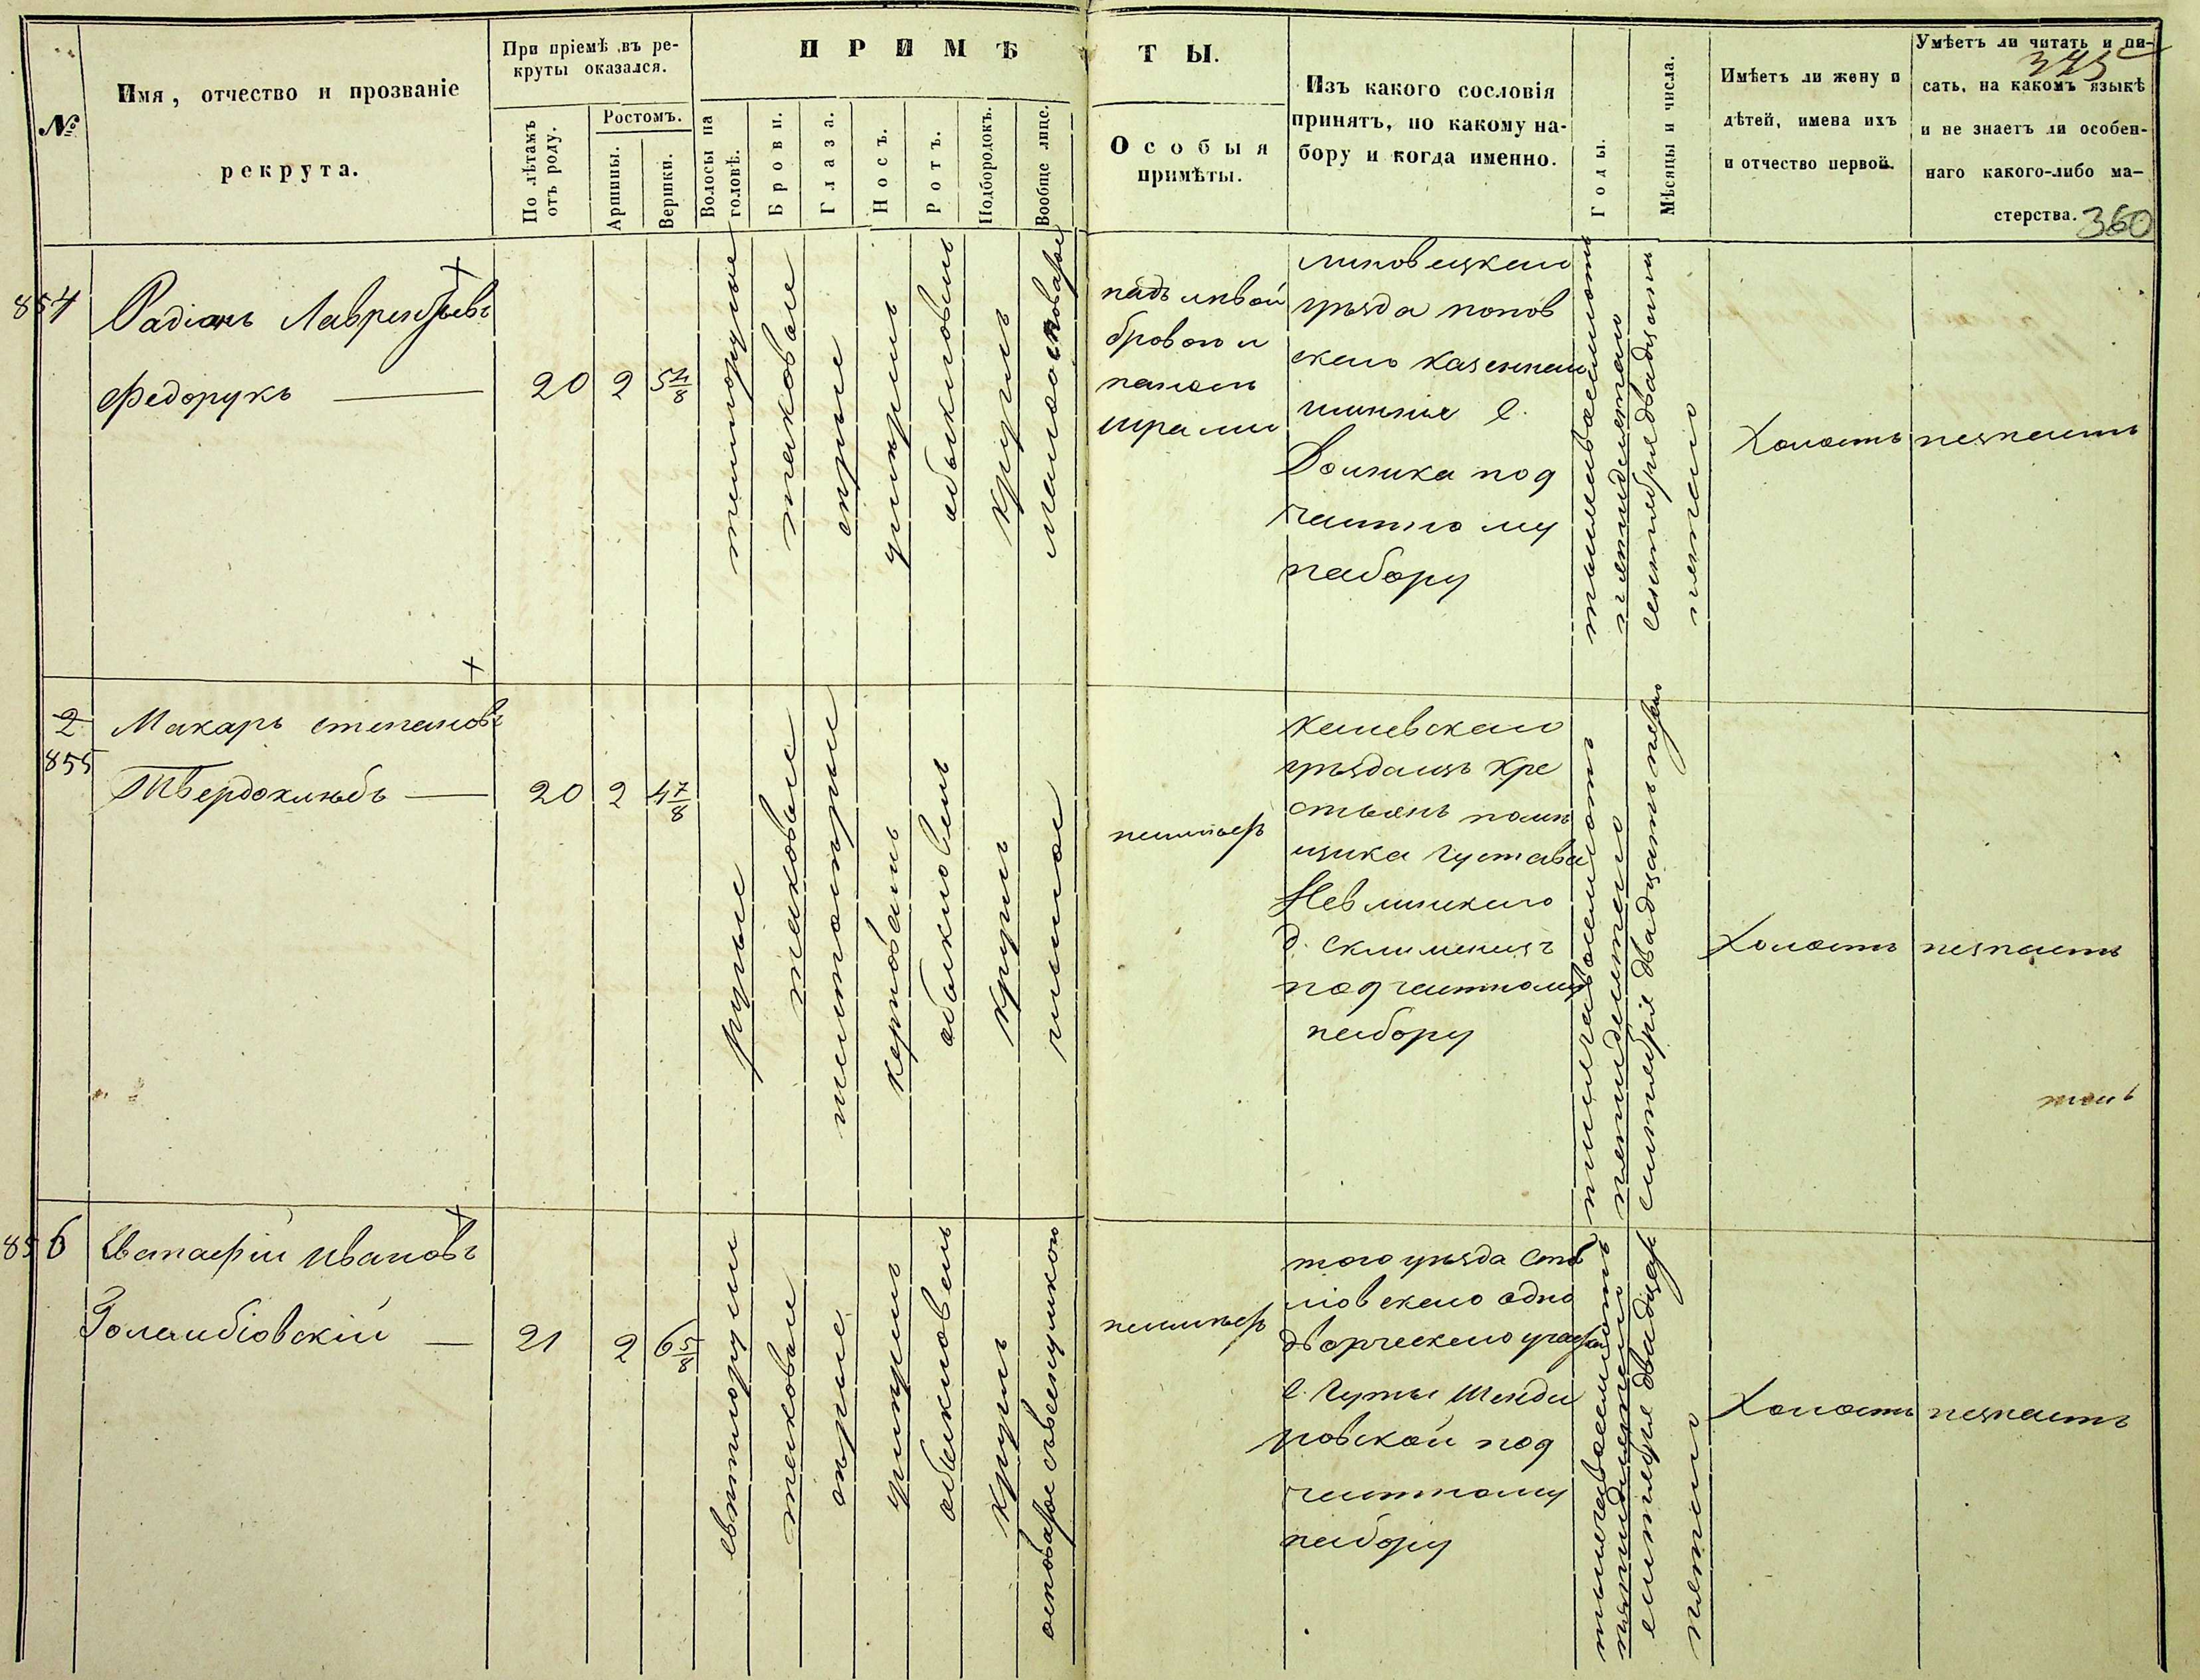 №
Имя, отчество и прозваніе
рекрута.
При пріемѣ въ ре-
круты оказался.
По лѣтамъ
отъ роду.
Ростомъ.
Аршины.
Вершки.
ПРИМѢ
Волосы на
головѣ.
Брови.
Глаза.
Носъ.
Ротъ.
Подбородокъ.
Вообще лице.
ТЫ.
Особыя
примѣты.
Изъ какого сословія
принятъ, по какому на-
бору и когда именно.
Годы.
Мѣсяцы и числа.
Имѣетъ ли жену и
дѣтей, имена ихъ
и отчество первой.
Умѣетъ ли читать и пи-
сать, на какомъ языкѣ
и не знаетъ ли особен-
наго какого-либо ма-
стерства.
360
854
Радіонъ Лаврентьевъ
Федорукъ
20
2
5 4/8
темнорусые
таковые
сѣрые
умѣренъ
обыкновенъ
круглъ
надъ лѣвой
бровою и
шрамы
липовецкаго
уѣзда попов
скаго казеннаго
имѣнія с.
под
частному
набору
тысяча восемьсотъ
пятидесятаго
сентября двадцать
пятаго
Холостъ
незнаетъ
2
855
Макаръ степановъ
Твердохлѣбъ
20
2
4 7/8
русые
таковые
обыкновенъ
круглъ
чистое
неимѣетъ
каневскаго
уѣзда изъ кре
стьянъ помѣ
щика Густава
под частному
набору
тысяча восемьсотъ
пятидесятаго
сентября двадцать перваго
Холостъ
незнаетъ
856
Евстафій Ивановъ
Голембіовскій
21
2
6 5/8
свѣтлорусые
таковые
сѣрые
умѣренъ
обыкновенъ
круглъ
неимѣетъ
того уѣзда
скаго одно
дворческаго
с. Гуты Шенде
ровской под
частному
набору
тысяча восемьсотъ
пятидесятаго
сентября двадцать
пятаго
Холостъ
незнаетъ